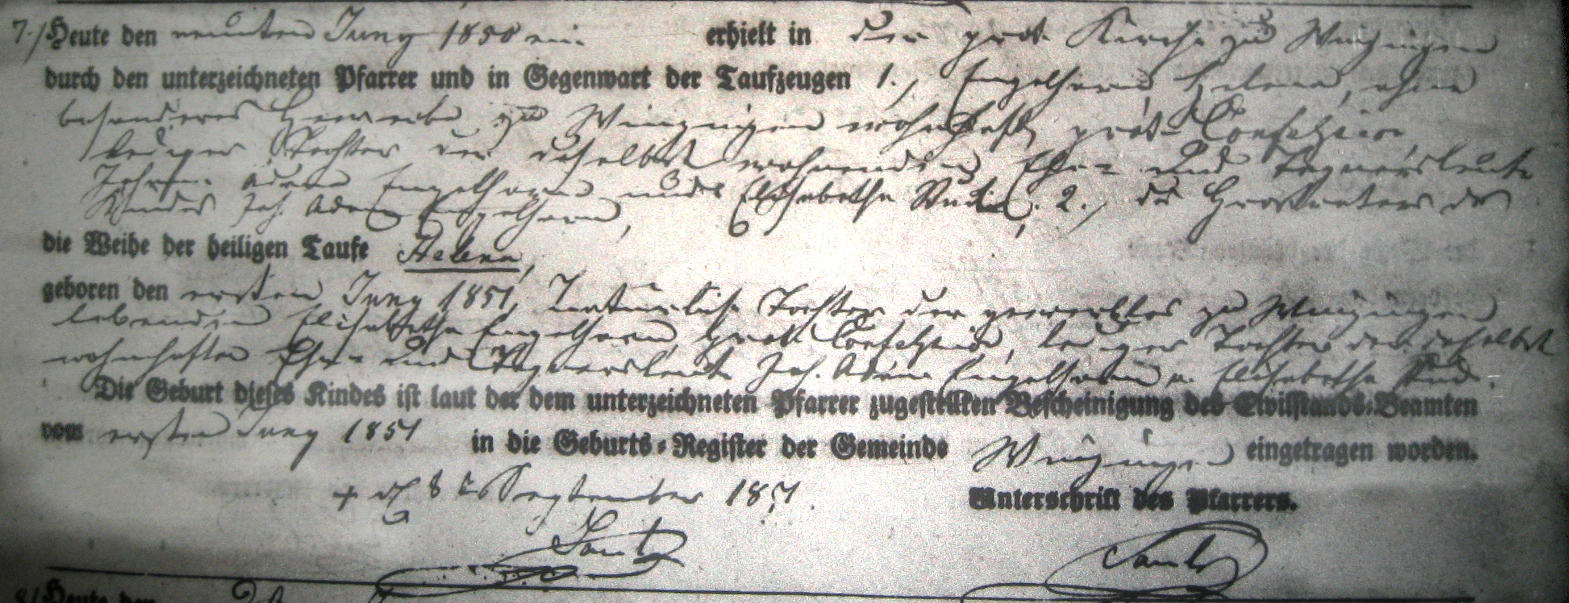 7./ Heute den neunten Juny 1850 ein erhielt in der prot. Kirche zu Winzingen
durch den unterzeichneten Pfarrer und in Gegenwart der Taufzeugen 1., Engelhorn Helena, ohne
besonderes Gewerbe zu Winzingen wohnhaft, prot. Confession
lediger Tochter der daselbst wohnenden Ehe- und Wagnersleute
Johann Adam Engelhorn und Elisabetha 2., des Großvaters des
Kindes Joh. Adam Engelhorn,
die Weihe der heiligen Taufe Helena,
geboren den ersten Juny 1851, natürliche Tochter der gewerblos zu Winzingen
lebenden Elisabetha Engelhorn prot. Confession, lediger Tochter der daselbst
wohnhaften Ehe- und Wagnersleute Joh. Adam Engelhorn u. Elisabetha
Die Geburt dieses Kindes ist laut der dem unterzeichneten Pfarrer zugestellten Bescheinigung des Civilstands-Beamten
vom ersten Juny 1851 in die Geburts-Register der Gemeinde Winzingen eingetragen worden.
+ d. 8 September Unterschrift des Pfarrers.
8/ Heute den